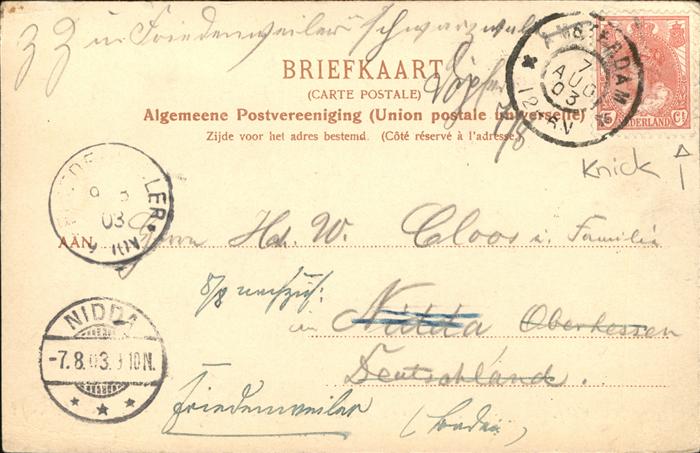 z Z in Friedenweiler Schwarzwald
BRIEFKAART
(CARTE POSTALE)
Algemeene Postvereeniging (Union postale universelle)
Zijde voor het adres bestemd. (Côté réservé à l'adresse.)
7/8
AMSTERDAM
7 AUG 03
12
5 Ct
NEDERLAND
Knick
03
AAN
Herrn Hch. W. Cloos u. Familie
8/8 nachzus:
in Nidda Oberhessen
Deutschland.
NIDDA
-7.8.03.9 10N.
Friedenweiler (Baden)